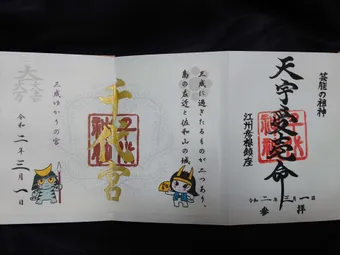 芸能の祖神
天宇受売命
江州彦根鎮座
令和二年三月一日
参拝
三成に過ぎたるものが二つあり、
島の左近と佐和山の城
千代宮
三成ゆかりの宮
令和二年三月一日
大一大万大吉